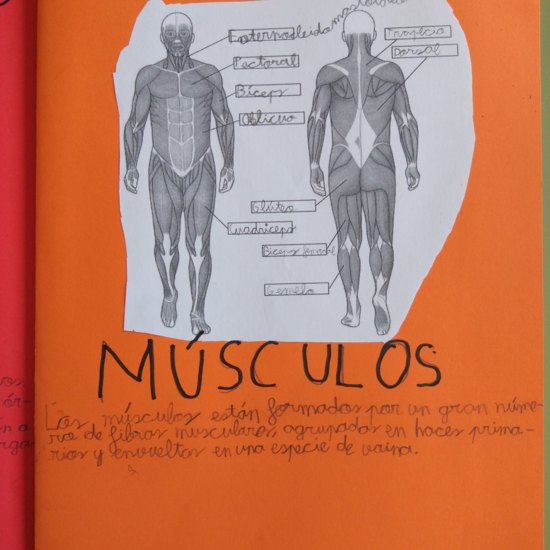 Esternocleidomastoideo
Pectoral
Bíceps
Oblicuo
Cuadriceps
Trapecio
Dorsal
Glúteo
Biceps femoral
Gemelo
MÚSCULOS
Los músculos están formados por un gran núme-
ro de fibras musculares, agrupadas en haces prima-
rios y envueltas en una especie de vaina.